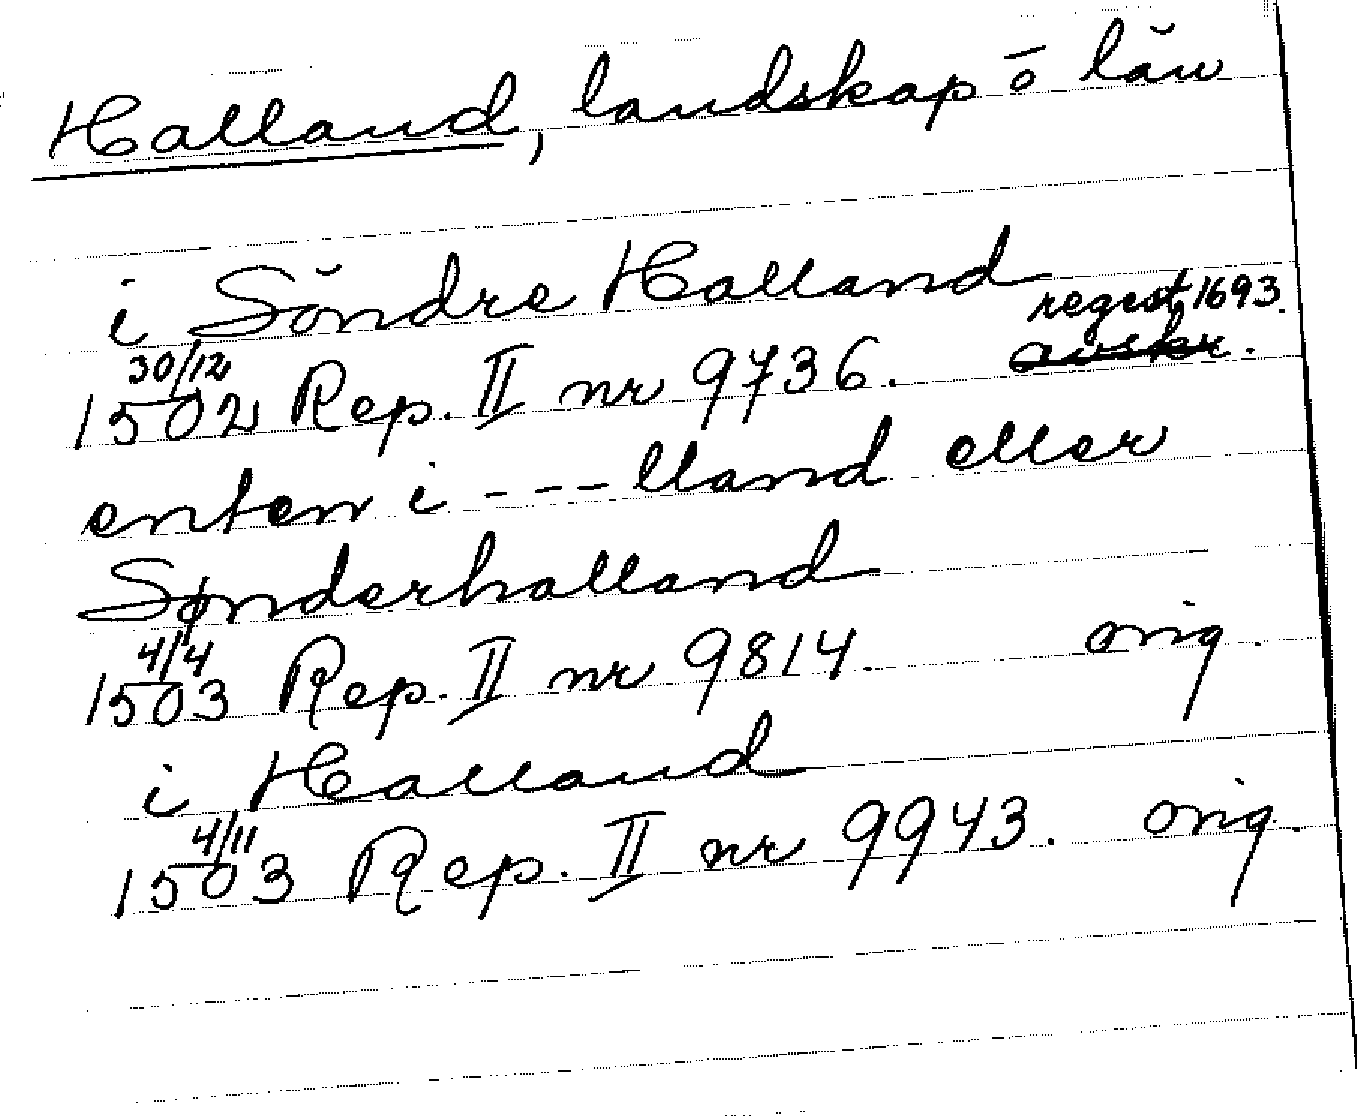 Halland, landskap o län
i Söndre Halland
regest 1693.
30/12
1502 Rep. II nr 9736. avskr.
enten i - - - lland eller
Sønderhalland
4/4
1503 Rep. II nr 9814. orig.
i Halland
4/11
1503 Rep. II nr 9943. orig.